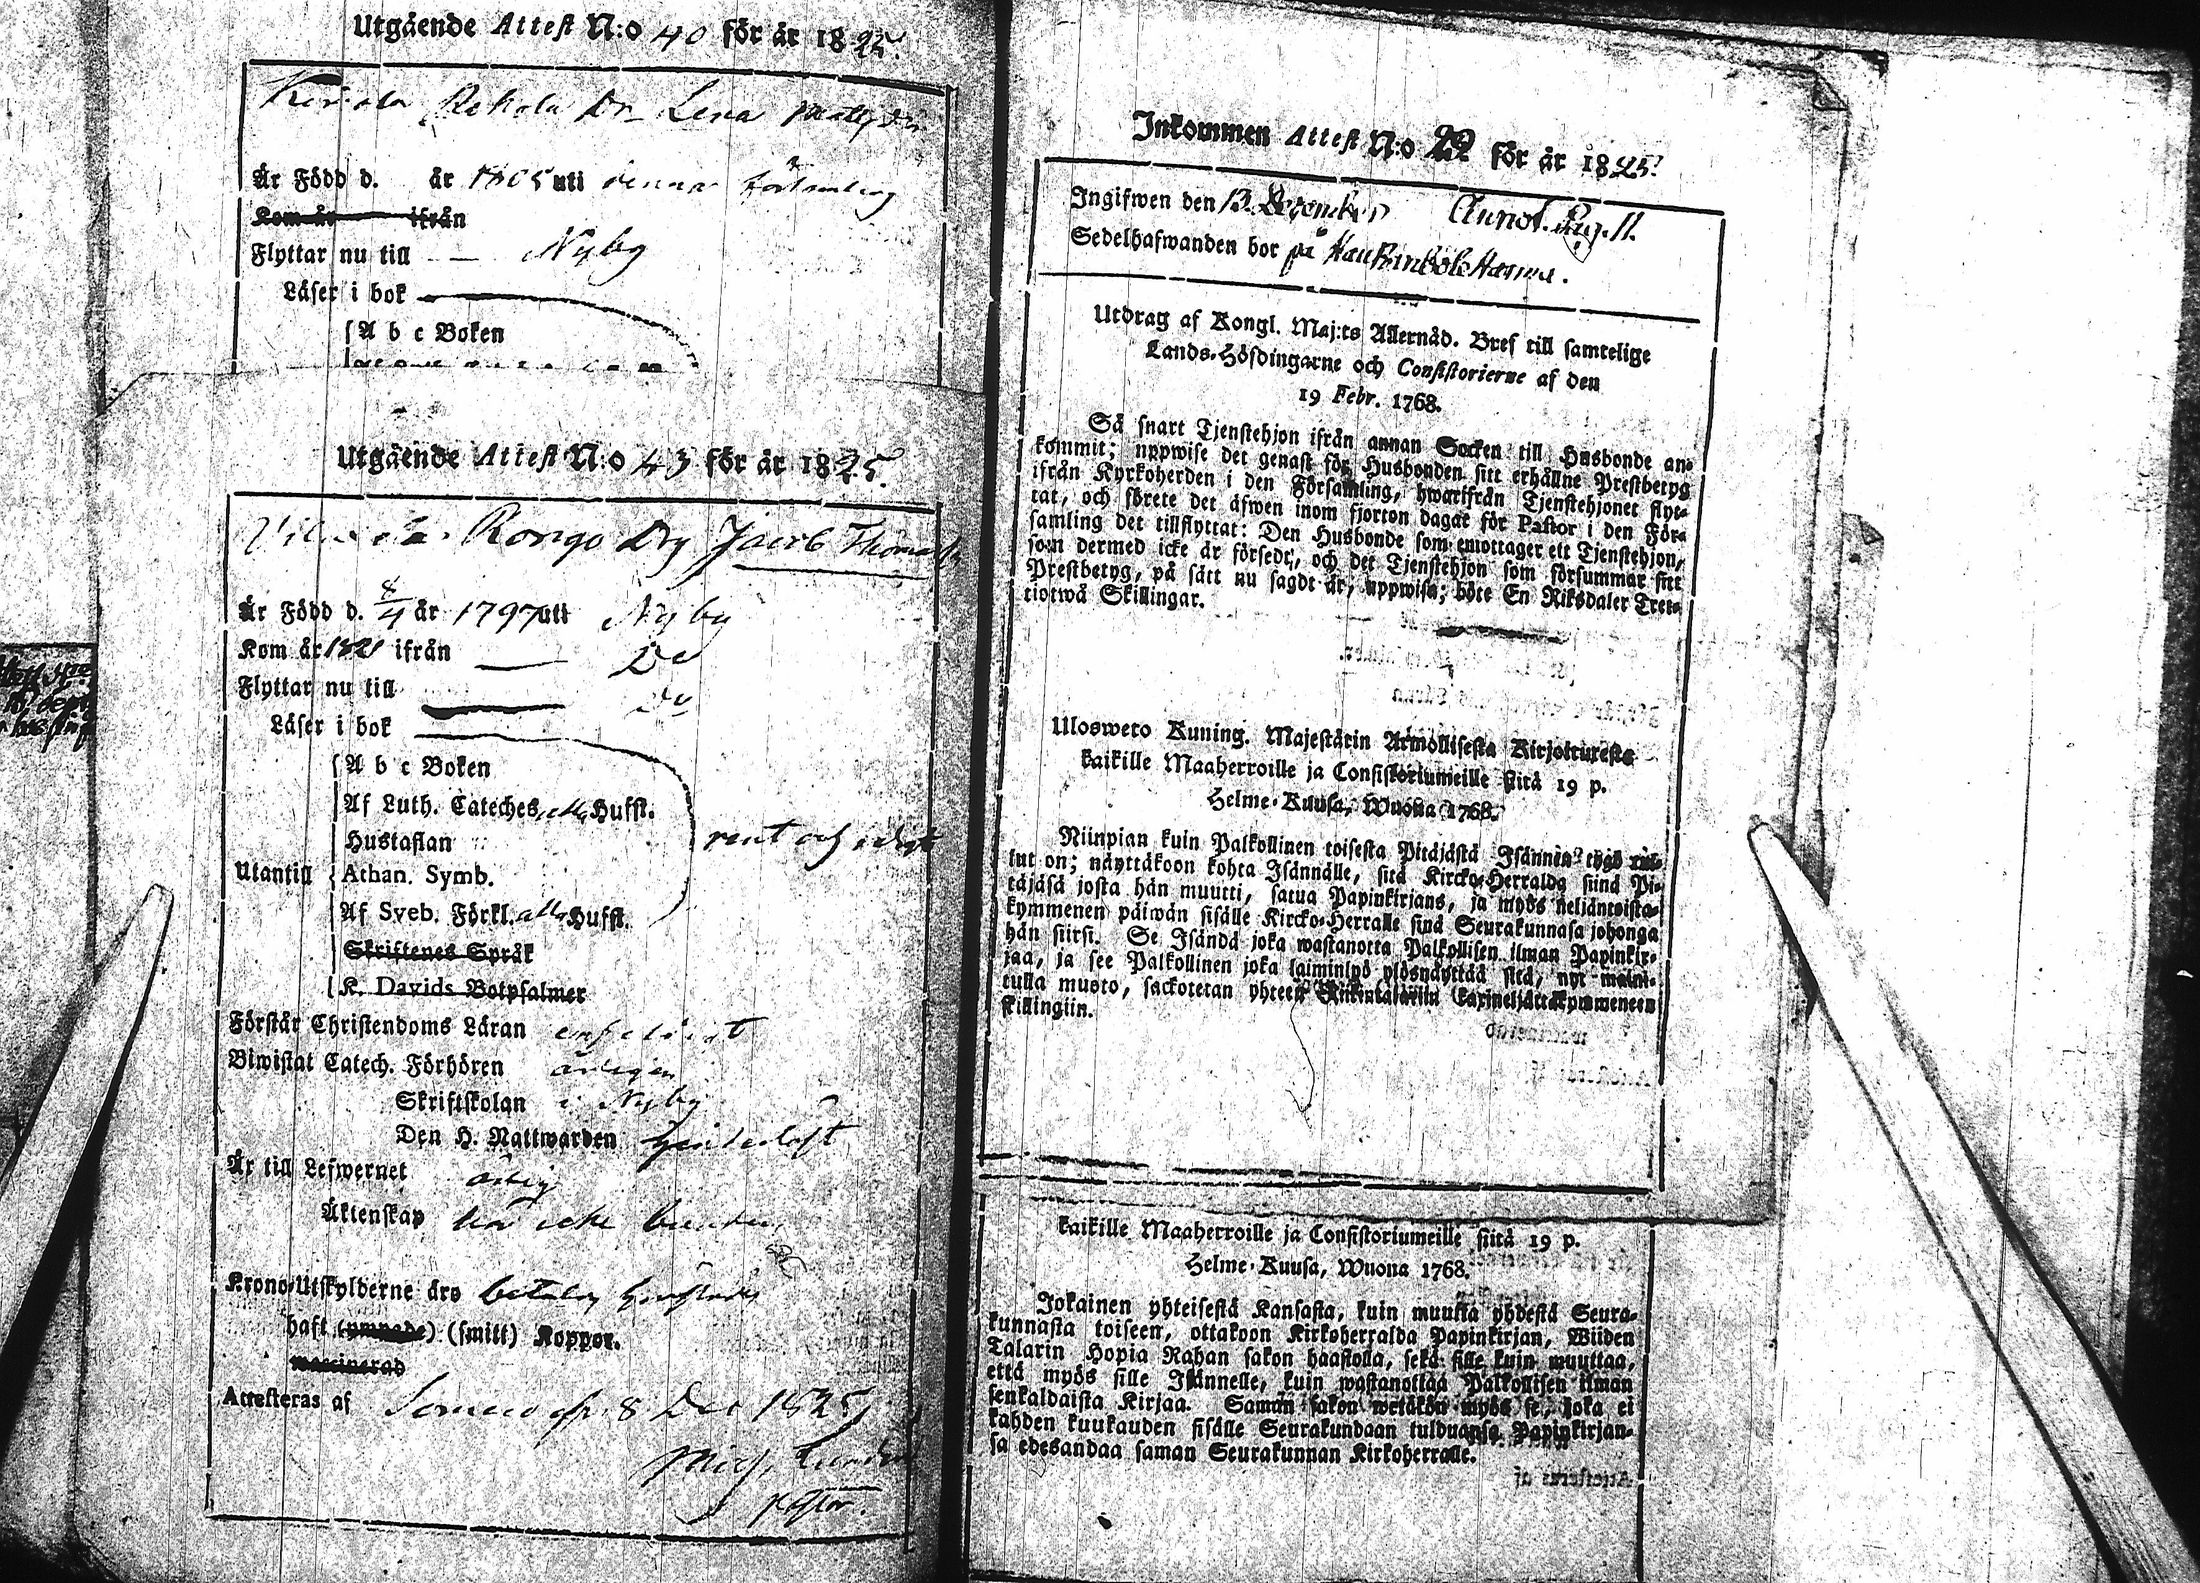 Utgående Attest N:o 40 för år 1825.
Rekola Dr Lena
År Född d. år 1805 uti denna församling
Kom år ifrån
Flyttar nu till Nyby
Läser i bok
A b c Boken
Utgående Attest N:o 43 för år 1825.
Rongo Drg Jacob Thomass
År Född d. 8/4 år 1797 uti Nyby
Kom år 1821 ifrån Do
Flyttar nu till Do
Läser i bok
A b c Boken
Af Luth. Cateches. alla Hufst.
Hustaflan rent och
Utantill Athan. Symb.
Af Sveb. Förkl. alla Hufst.
Skriftenes Språk
K. Davids Botpsalmer
Förstår Christendoms Läran enfeldigt
Biwistat Catech. Förhören årligen
Skriftskolan i Nyby
Den H. Nattwarden
Är till Lefwernet ärlig
Äktenskap har icke
Krono-Utskylderne äro betalta
haft (ympade) (smitt) Koppor.
vaccinerad
Attesteras af Somero d. 8 Dec 1825
Mich.
Pastor.
Inkommen Attest N:o 29 för år 1825.
Ingifwen den 13 December Annot. Pag. 11.
Sedelhafwanden bor på
Utdrag af Kongl. Maj:ts Allernåd. Bref till samtelige
Lands-Höfdingarne och Consistorierne af den
19 Febr. 1768.
Så snart Tjenstehjon ifrån annan Socken till Husbonde an-
kommit; uppwise det genast för Husbonden sitt erhållne Prestbetyg
ifrån Kyrkoherden i den Församling, hwarifrån Tjenstehjonet flyt-
tat, och förete det äfwen inom fjorton dagar för Pastor i den För-
samling det tillflyttat: Den Husbonde som emottager ett Tjenstehjon,
som dermed icke är försedt, och det Tjenstehjon som försummar sitt
Prestbetyg, på sätt nu sagdt är, uppwisa; böte En Riksdaler Tret-
tiotwå Skillingar.
Ulosweto Kuning. Majestärin Armollisesta Kirjoituresta
kaikille Maaherroille ja Consistoriumeille siitä 19 p.
Helme-Kuusa, Wuona 1768.
Niinpian kuin Palkollinen toisesta Pitäjästä Isännän tygö tul-
lut on; näyttäkoon kohta Isännälle, sitä Kircko-Herralda siinä Pi-
täjäsä josta hän muutti, saatua Papinkirjans, ja myös neljäntoista-
kymmenen päiwän sisälle Kircko-Herralle siinä Seurakunnasa johonga
hän siirsi. Se Isändä joka wastanotta Palkollisen ilman Papinkir-
jaa, ja see Palkollinen joka laiminlyö ylösnäyttää sitä, nyt maini-
tulla muoto, sackotetan yhteen Riikintalariin kaxineljättäkymmeneen
skillingiin.
kaikille Maaherroille ja Consistoriumeille siitä 19 p.
Helme-Kuusa, Wuona 1768.
Jokainen yhteisestä Kansasta, kuin muutta yhdestä Seura-
kunnasta toiseen, ottakoon Kirkoherralda Papinkirjan, Wiiden
Talarin Hopia Rahan sakon haastolla, sekä sille kuin muuttaa,
että myös sille Isännelle, kuin wastanottaa Palkollisen ilman
senkaldaista Kirjaa. Saman sakon wetäkön myös se, joka ei
kahden kuukauden sisälle Seurakundaan tulduansa Papinkirjan-
sa edesandaa saman Seurakunnan Kirkoherralle.